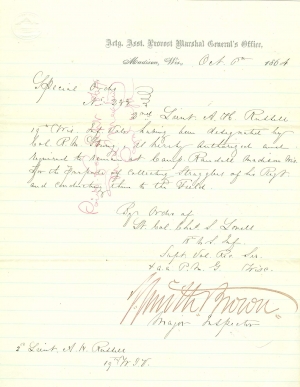 Actg. Asst. Provost Marshal General's Office,
Madison, Wis. Oct. 1864
Special Order
No.
2nd Lieut. A. H. Russell
19th Wis. Inft. Vols. having been delegated by
Col. R. M. Strong, is hereby authorized and
required to remain at Camp Randall Madison Wis
for the purpose of collecting stragglers of his Regt
and conducting them to the Field
By Order of
Lt. Col. Chas. S. Lovell
U.S. Inf.
Supt. Vol. Rec. Ser.
& a a P. M. G. Wisc.
Smith Brown
Major Inspector
2d Lieut. A. H. Russell
19th W.I.V.